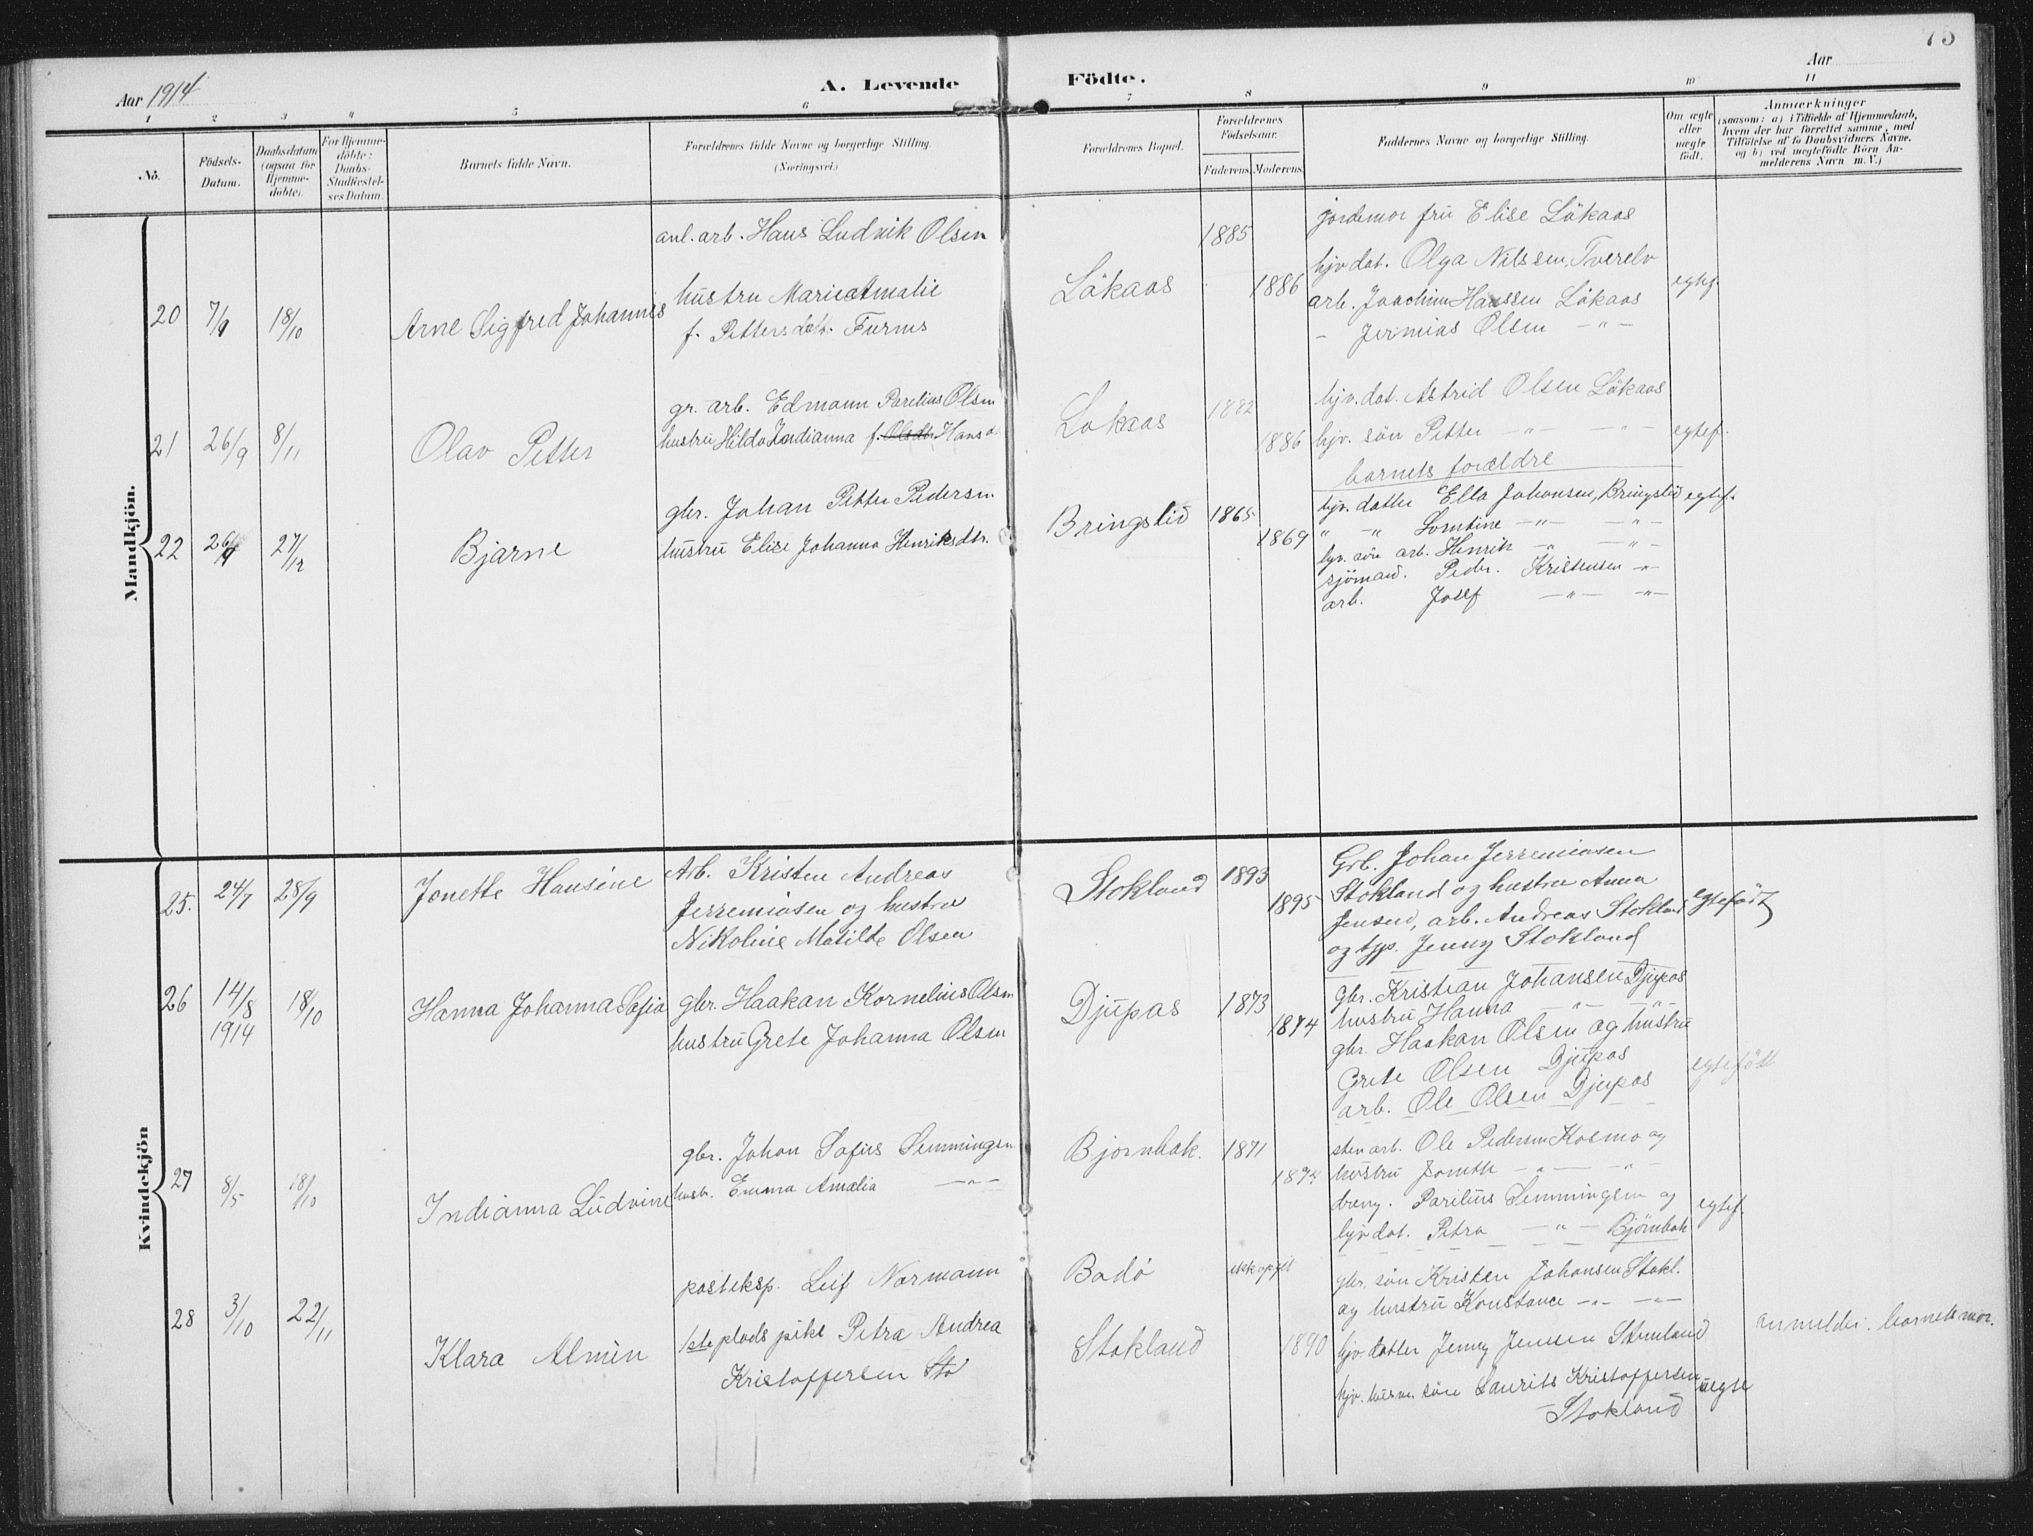 Aar 1914
A. Levende Födte.
Aar
1 2 3 4 5 6 7 8 9 10 11
No.
Födsels-Datum.
Daabsdatum (ogsaa for Hjemme-döbte).
For Hjemme-döbte: Daabs-Stadfæstelses Datum.
Barnets fulde Navn.
Forældrenes fulde Navne og borgerlige Stilling.
(Næringsvei.)
Forældrenes Bopæl.
Forældrenes Födselsaar.
Faderens. Moderens.
Faddernes Navne og borgerlige Stilling.
Om ægte eller uægte födt.
Anmærkninger
(saasom: a) i Tilfælde af Hjemmedaab, hvem der har forrettet samme, med Tilföielse af to Daabsvidners Navne, og b) ved uægtefödte Börn Anmelderens Navn m. V.)
Mandkjön.
20 7/9 18/10 Arne Sigfred Johannes
anl. arb. Hans Ludvik Olsen
hustru Marie Amalie
f. Pettersdatt. Furnes
Lökaas 1885 1886
jordemor fru Elise Lökaas
hjv dat. Olga Nilssen, Tverelv
arb. Joachim Hanssen Lökaas
- Jermias Olsen - " -
egtef.
21 26/9 8/11 Olav Petter
gr. arb. Edmann Parelius Olsen
hustru Hilda Indianna f. Olsdtr Hansdt
Lokaas 1882 1886
hjv. dat. Astrid Olsen Lökaas
hjv. sön Petter - " - - " -
barnets forældre
egtef.
22 27/12 Bjarne
gbr. Johan Petter Pedersen
hustru Elise Johanna Henriksdtr.
Bringslid 1865 1869
hjv. datter Ella Johansen, Bringslid
" " - " - - " -
hjv. sön arb. Henrik - " - - " -
sjömand. Peder. Kristensen - " -
arb. Josef - " - - " -
egtef.
Kvindekjön
25. 24/7 28/9 Jonette Hansine
Arb. Kristen Andreas
Jerremiasen og hustru
Nikoline Matilde Olsen
Stokland 1893 1895
Grb. Johan Jerremiasen
Stokland og hustru Anna
Jensen, arb. Andreas Stokland
og Jenny Stokland
egtefödt
26 14/8 1914 18/10 Hanna Johanna Sofia
gbr. Haakan Kornelius Olsen
hustru Grete Johanna Olsen
Djupas 1873 1874
gbr. Kristian Johansen Djupas
hustru Hanna - " - - " -
gbr. Haakan Olsen og hustru
Grete Olsen Djupas
arb. Ole Olsen Djupas
egtefödt
27 8/5 18/10 Indianna Ludvine
gbr. Johan Sofus Semmingsen
hustr. Emma Amalia - " -
Bjornbak. 1871 1874
stenarb. Ole Pedersen Kosmo og
hustru - " - - " -
dreng. Parelius Semmingsen og
hjv dat. Petra - " - Bjørnbak
egtef.
28 3/10 22/11 Klara Almin
posteksp. Leif Normann
1ste plads pike Petra Andrea
Kristoffersen Sto
Bodö
Stokland 1890
gbr. sön Kristen Johansen Stokl.
og hustru Konstance - " - - " -
hjv. datter Jenny Jensen
hjv. sön Laurits Kristoffersen
Stokland
uegte
anmelder. barnets mor.